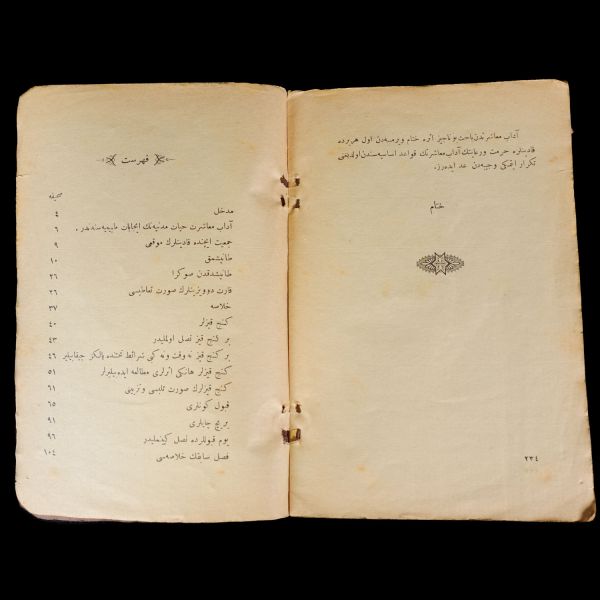 آداب معاشرتدن باحث بو ناچیز اثره ختام ویرمه‌دن اول هریرده
قادینلره حرمت ورعایتك آداب معاشرتك قواعد اساسیه‌سندن اولدیغنی
تكرار ایتمكی وجیبه‌دن عد ایده‌رز.
ختام
٢٣٤
فهرست
صحیفه
مدخل ٤
آداب معاشرت حیات مدنیه‌نك ایجابات طبیعیه‌سندندر . ٦
جمعیت ایچنده قادینلرك موقعی ٩
طانیشمق ١٠
طانیشدقدن صوكرا ٢٦
قارت دوویزیتلرك صورت تعاطیسی ٢٦
خلاصه ٣٧
كنج قیزلر ٤٠
بر كنج قیز نصل اولملیدر ٤٣
بر كنج قیز نه وقت ونه كبی شرائط تحتنده یالكز چیقابیلیر ٤٦
كنج قیزلر هانكی اثرلری مطالعه ایده‌بیلیرلر ٥١
كنج قیزلرك صورت تلبسی وتزینی ٦١
قبول كونلری ٦٥
بریج چایلری ٩١
یوم قبوللرده نصل كیینملیدر ٩٦
فصل سابقك خلاصه‌سی ١٠٤